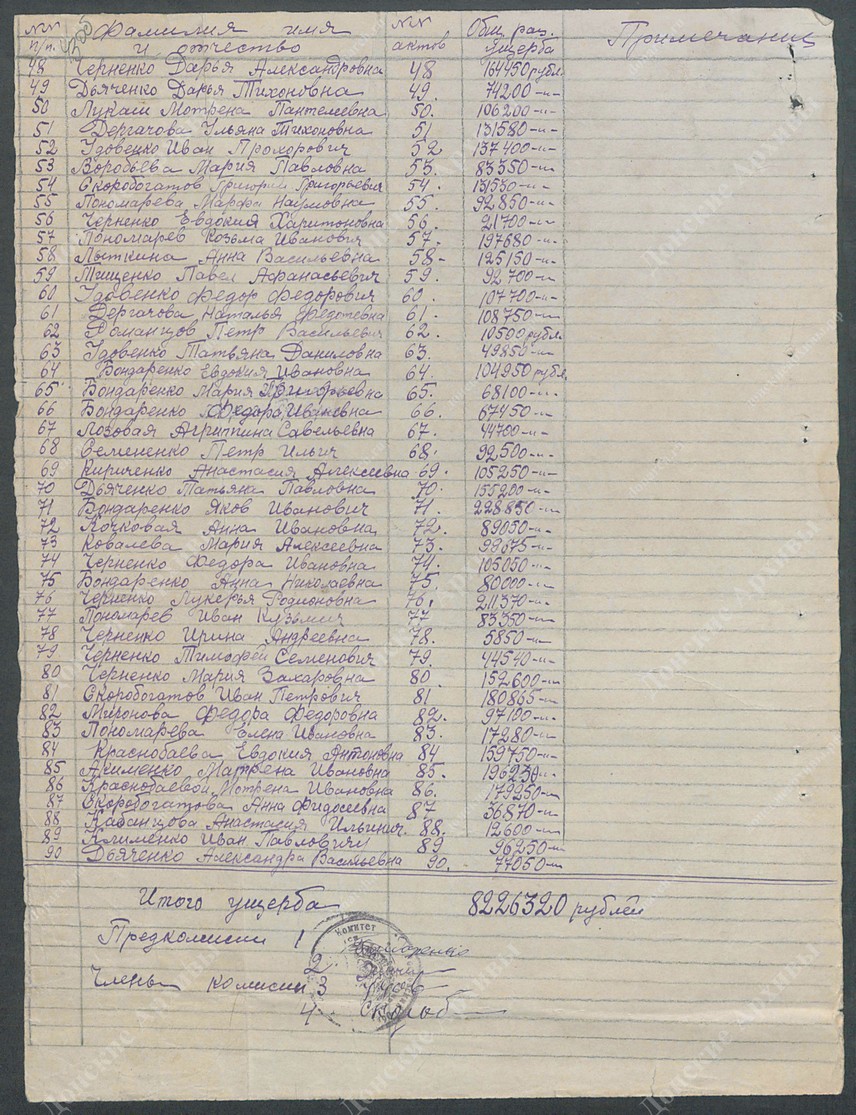 NN Фамилия имя NN Общ. раз. Примечания
п/п. и отчество актов ущерба
48 Черненко Дарья Александровна 48 164450 рубл.
49 Дьяченко Дарья Тихоновна 49. 74200 -"-
50 Лукаш Мотрена Пантелеевна 50. 106200 -"-
51 Дергачова Ульяна Тихоновна 51 131580 -"-
52 Удовенко Иван Прохорович 52 137400 -"-
53 Воробьева Мария Павловна 53. 83550 -"-
54 Скоробогатов Григорий Григорьевич 54. 131530 -"-
55 Пономарева Марфа Наумовна 55. 92850 -"-
56 Черненко Евдокия Харитоновна 56. 21700 -"-
57 Пономарев Козьма Иванович 57. 197680 -"-
58 Лыткина Анна Васильевна 58 - 125150 -"-
59 Тищенко Павел Афанасьевич 59. 92700 -"-
60 Удовенко Федор Федорович 60. 107700 -"-
61 Дергачова Наталья Федотевна 61. 108750 -"-
62 Романцов Петр Васильевич 62. 10500 рубл.
63 Удовенко Татьяна Даниловна 63. 49850 -"-
64 Бондаренко Евдокия Ивановна 64. 104950 рубл.
65 Бондаренко Мария 65. 68100 -"-
66 Бондаренко Федора Ивановна 66. 67450 -"-
67 Лозовая Агриппина Савельевна 67. 44700 -"-
68 Семененко Петр Ильич 68. 92500 -"-
69 Кириченко Анастасия Алексеевна 69. 105250 -"-
70 Дьяченко Татьяна Павловна 70. 155200 -"-
71 Бондаренко Яков Иванович 71. 228850 -"-
72 Кочковая Анна Ивановна 72. 89050 -"-
73 Ковалева Мария Алексеевна 73. 99675 -"-
74 Черненко Федора Ивановна 74. 105050 -"-
75 Бондаренко Анна Николаевна 75. 80000 -"-
76 Черненко Лукерья Родионовна 76. 211370 -"-
77 Пономарев Иван Кузьмич 77 83350 -"-
78 Черненко Ирина Андреевна 78. 5850 -"-
79 Черненко Тимофей Семенович 79. 44540 -"-
80 Черненко Мария Захаровна 80. 152600 -"-
81 Скоробогатов Иван Петрович 81 180865 -"-
82 Миронова Федора Федоровна 82. 97100 -"-
83 Пономарева Елена Ивановна 83. 17280 -"-
84 Краснобаева Евдокия Антоновна 84 159750 -"-
85 Акименко Матрена Ивановна 85. 196230 -"-
86 Краснобаевой Мотрена Ивановна 86. 179250 -"-
87 Скоробогатова Анна Фидосеевна 87 36870 -"-
88 Кабанцова Анастасия Ильинич. 88. 12600 -"-
89 Клименко Иван Павлович 89 96250 -"-
90 Дьяченко Александра Васильевна 90. 77050 -"-
Итого ущерба 8226320 рублей
Предкомисии 1
2
Члены комисии 3
4 Скороб
Комитет
Донские Архивы